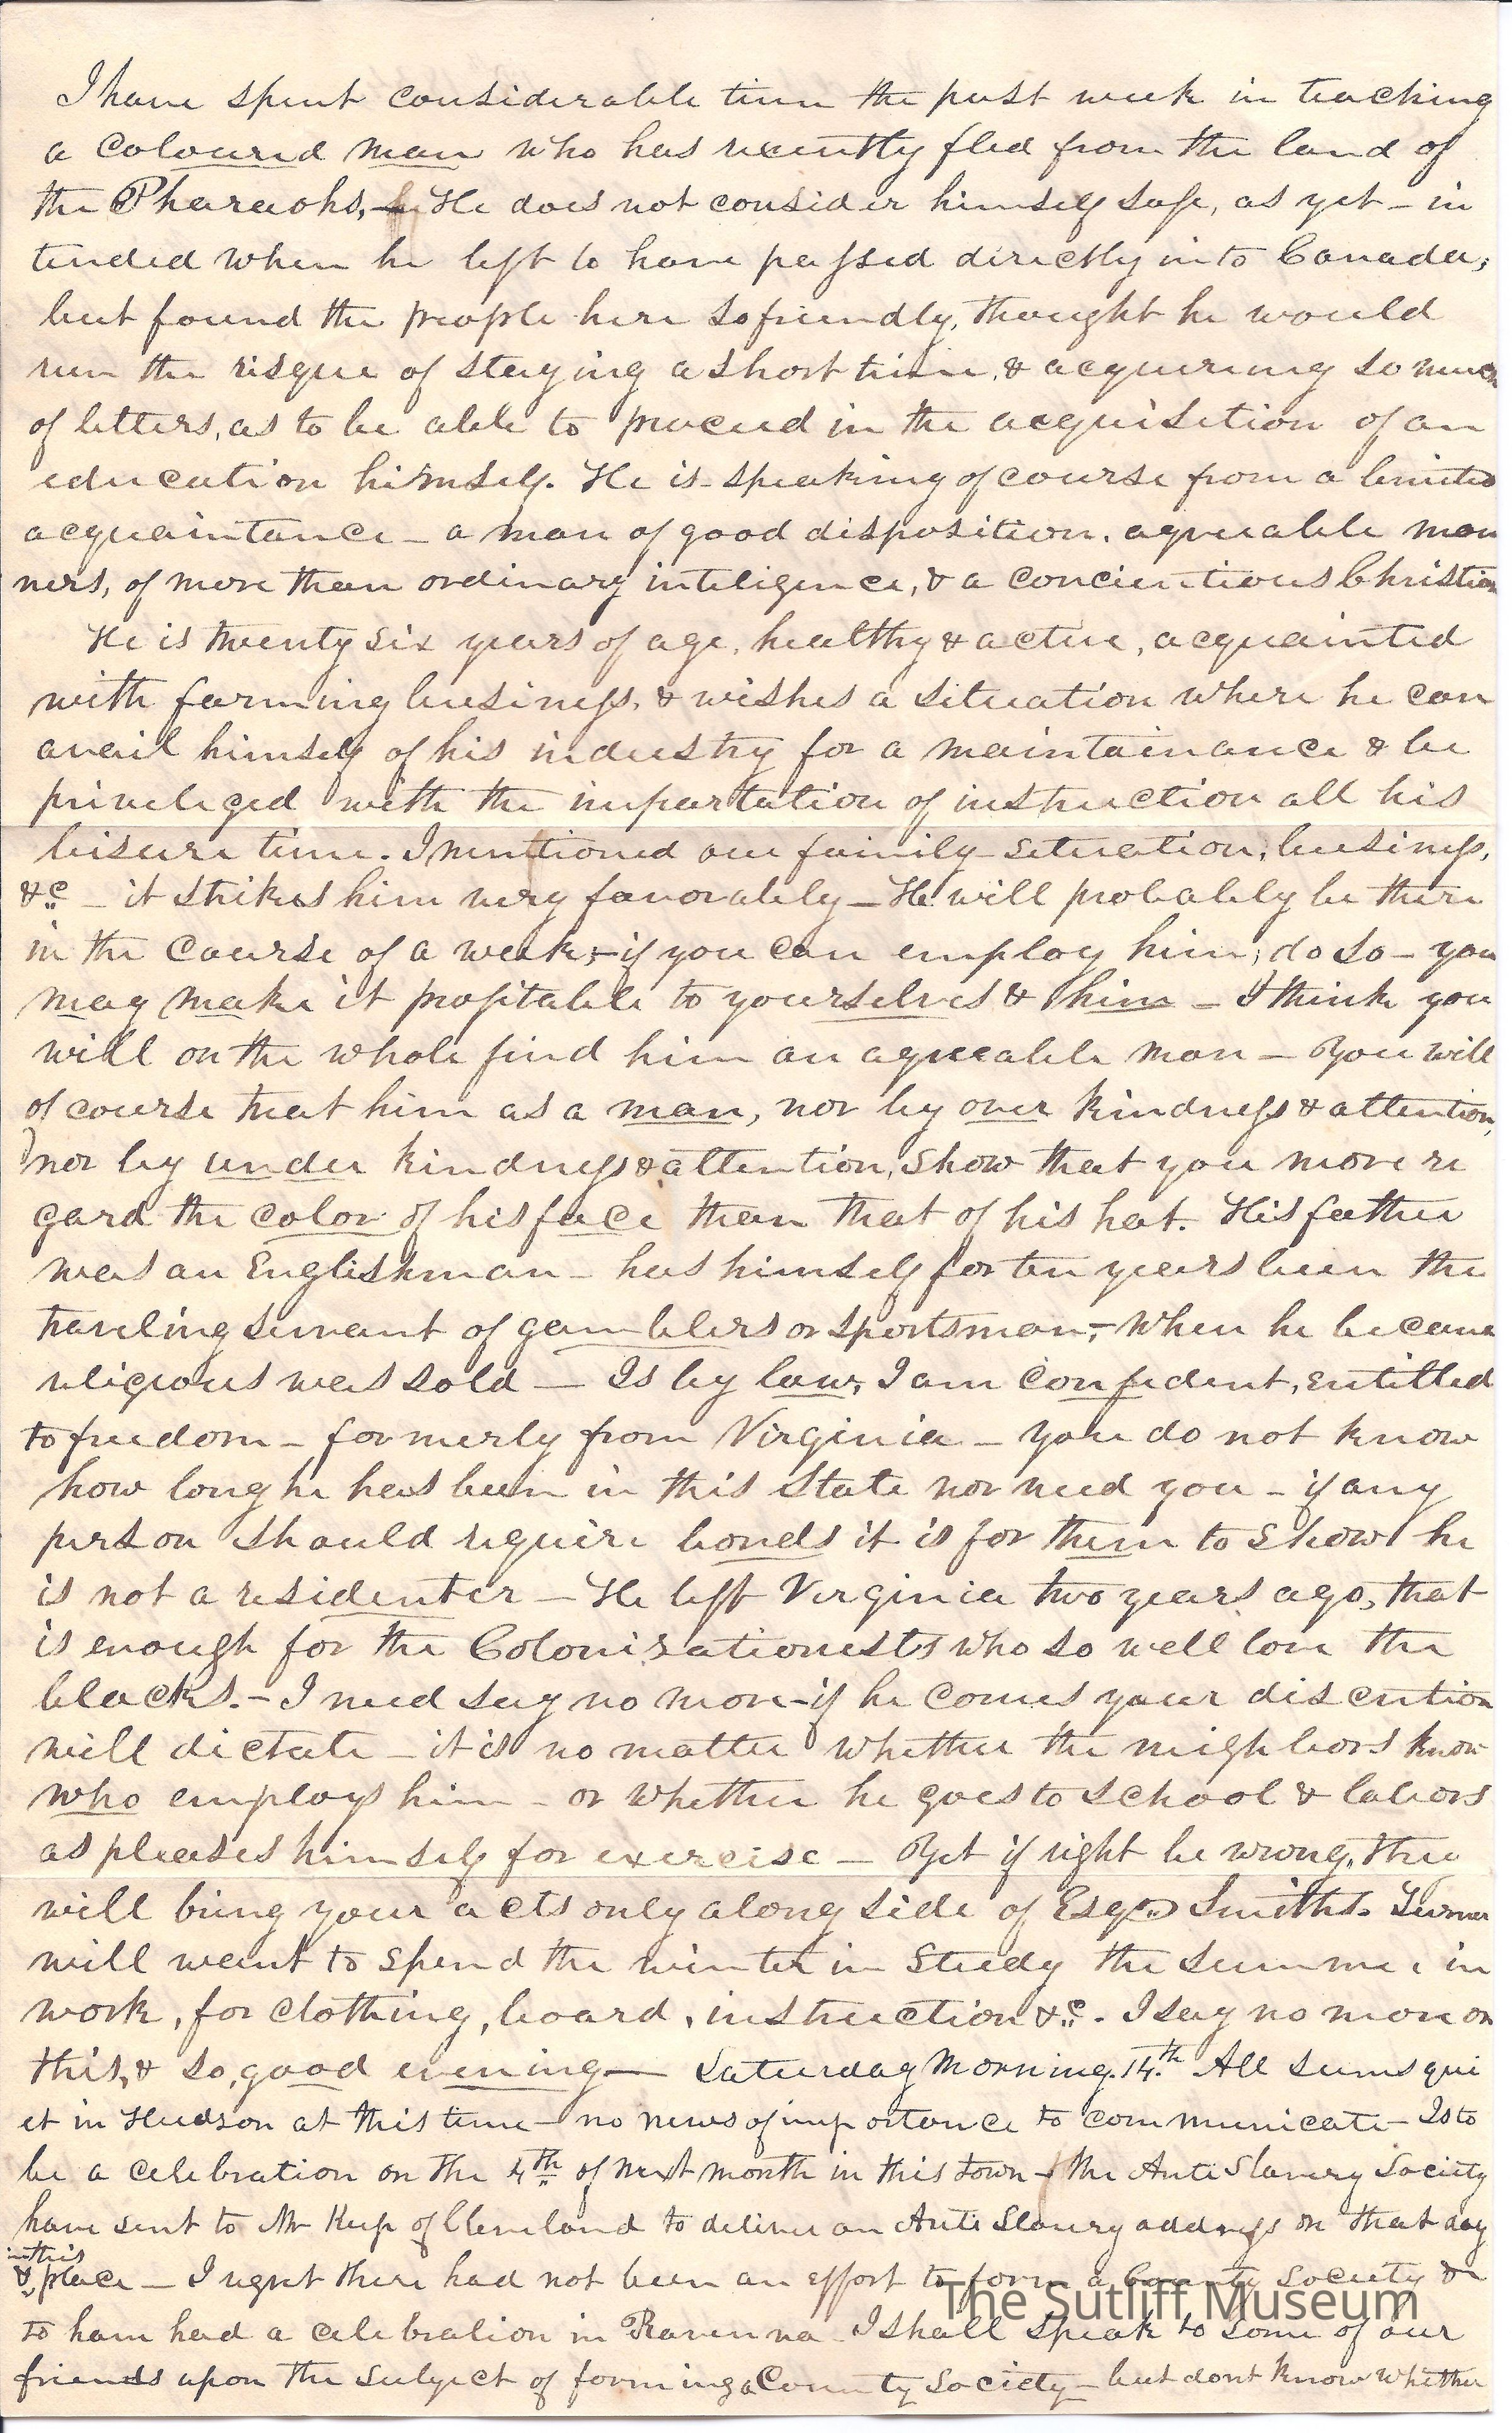 I have spent considerable time the past week in teaching
a coloured man who has recently fled from the land of
the Pharaohs, He does not consider himself safe, as yet – in
tended when he left to have passed directly into Canada;
but found the people here so friendly, thought he would
run the risque of staying a short time, & acquiring so much
of letters, as to be able to proceed in the acquisition of an
education himself. He is – speaking of course from a limited
acquaintance – a man of good disposition, agreeable man
ners, of more than ordinary inteligence, & a concientious Christian
He is twenty six years of age, healthy & active, acquainted
with farming business, & wishes a situation where he can
avail himself of his industry for a maintainance & be
priveleged with the impartation of instruction all his
leisure time. I mentioned our family – situation, business,
&c – it strikes him very favorably – He will probably be there
in the course of a week, – if you can employ him; do so – you
may make it profitable to yourselves & him – I think you
will on the whole find him an agreeable man – You will
of course treat him as a man, nor by over kindness & attention,
nor by under kindness & attention, show that you more re
gard the color of his face than that of his hat. His father
was an Englishman – has himself for ten years been the
traveling servant of gamblers or sportsman; – when he became
religious was sold – Is by law, I am confident, entitled
to freedom – formerly from Virginia – you do not know
how long he has been in this State nor need you – if any
person should require bonds it is for them to show he
is not a residenter – He left Virginia two years ago, that
is enough for the Colonizationests who so well love the
blacks. – I need say no more – if he comes your discretion
will dictate – it is no matter whether the neighbors know
who employs him – or whether he goes to school & labors
as pleases himself for exercise – Yet if right be wrong, this
will bring your acts only along side of Esqr. Smiths. Turner
will want to spend the winter in study the summer in
work, for clothing, board, instruction &c. I say no more on
this, & so, good evening – Saturday Morning. 14.th All seems qui
et in Hudson at this time – no news of importance to communicate – Is to
be a celebration on the 4th of next month in this town – the Anti Slavery Society
have sent to Mr Keep of Cleveland to deliver an Anti Slavery address on that day
in this
& place – I regret there had not been an effort to form a County Society &
to have had a celebration in Ravenna – I shall speak to some of our
friends upon the subject of forming a County Society – but dont know whether
The Sutliff Museum